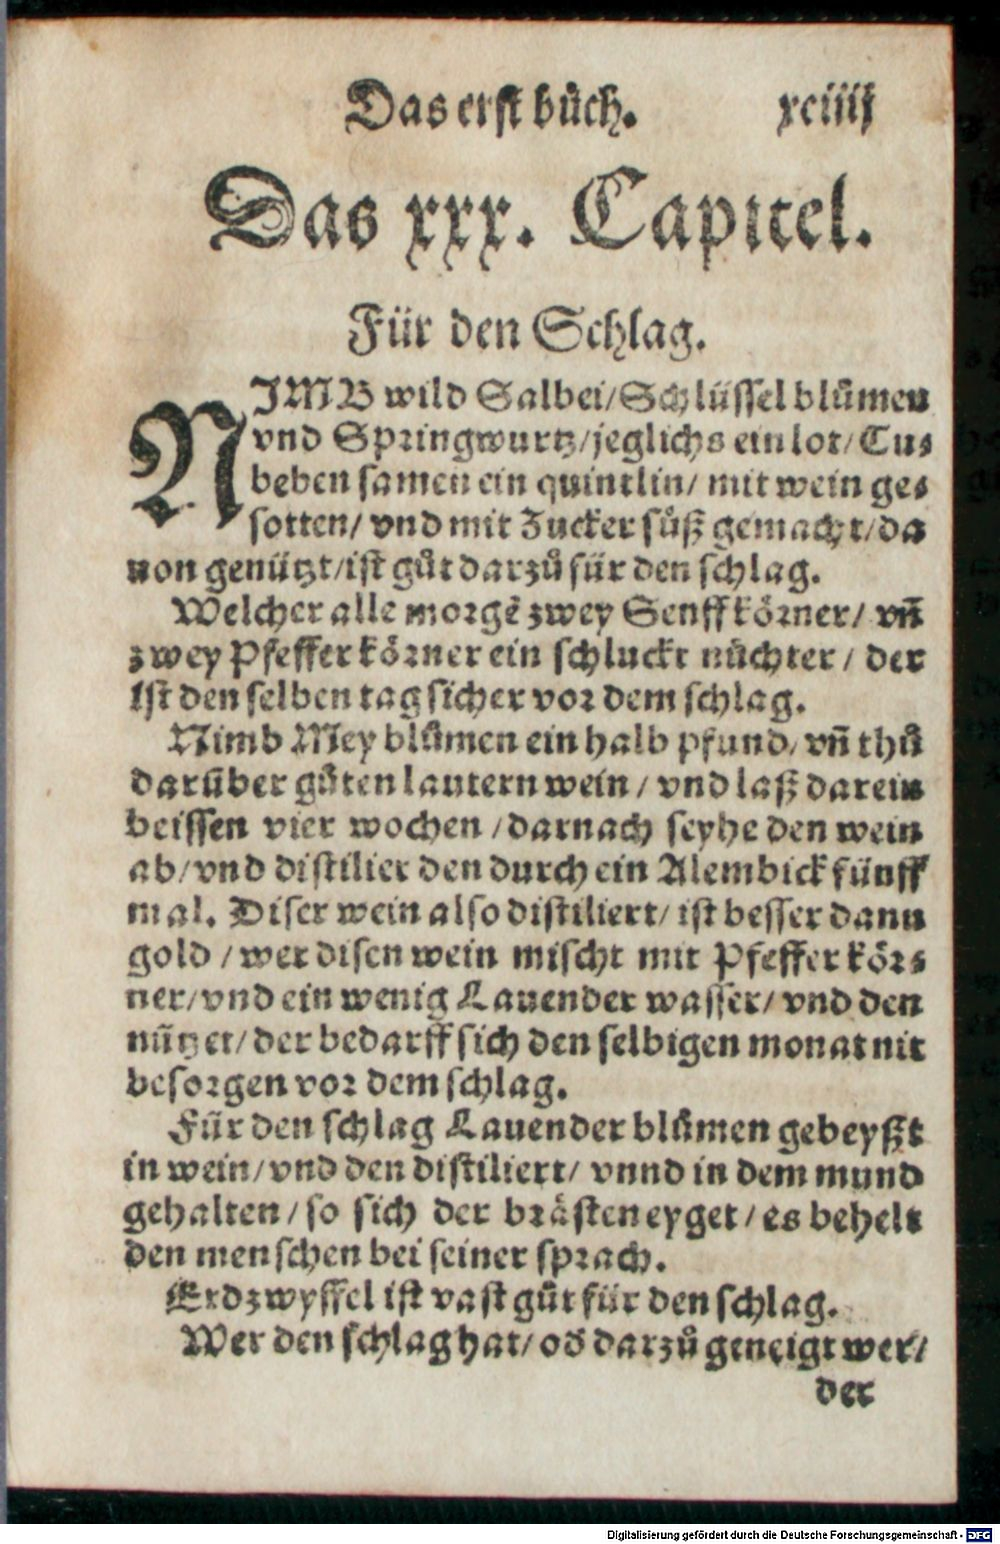 Das erst bůch. xciiij
Das xxx. Capitel.
Für den Schlag.
NJMB wild Salbei/Schlüssel blůmen
vnd Springwurtz/jeglichs ein lot/ Cu⸗
beben samen ein quintlin/ mit wein ge⸗
sotten/ vnd mit Zucker süß gemacht/da
uon genützt/ist gůt darzů für den schlag.
Welcher alle morgē zwey Senffkörner/ vñ
zwey Pfefferkörner ein schluckt nüchter/ der
ist den selben tag sicher vor dem schlag.
Nimb Mey blůmen ein halb pfund/ vñ thů
darüber gůten lautern wein/ vnd laß darein
beissen vier wochen/darnach seyhe den wein
ab/vnd distilier den durch ein Alembick fünff
mal. Diser wein also distiliert/ ist besser dann
gold/wer disen wein mischt mit Pfefferkör⸗
ner/vnd ein wenig Lauender wasser/ vnd den
nützet/der bedarff sich den selbigen monat nit
besorgen vor dem schlag.
Für den schlag Lauender blůmen gebeyßt
in wein/vnd den distiliert/ vnnd in dem mund
gehalten/so sich der brästen eyget/es behelt
den menschen bei seiner sprach.
Erdzwyffel ist vast gůt für den schlag.
Wer den schlag hat/ od̕ darzů geneigt wer/
der
Digitalisierung gefördert durch die Deutsche Forschungsgemeinschaft - DFG